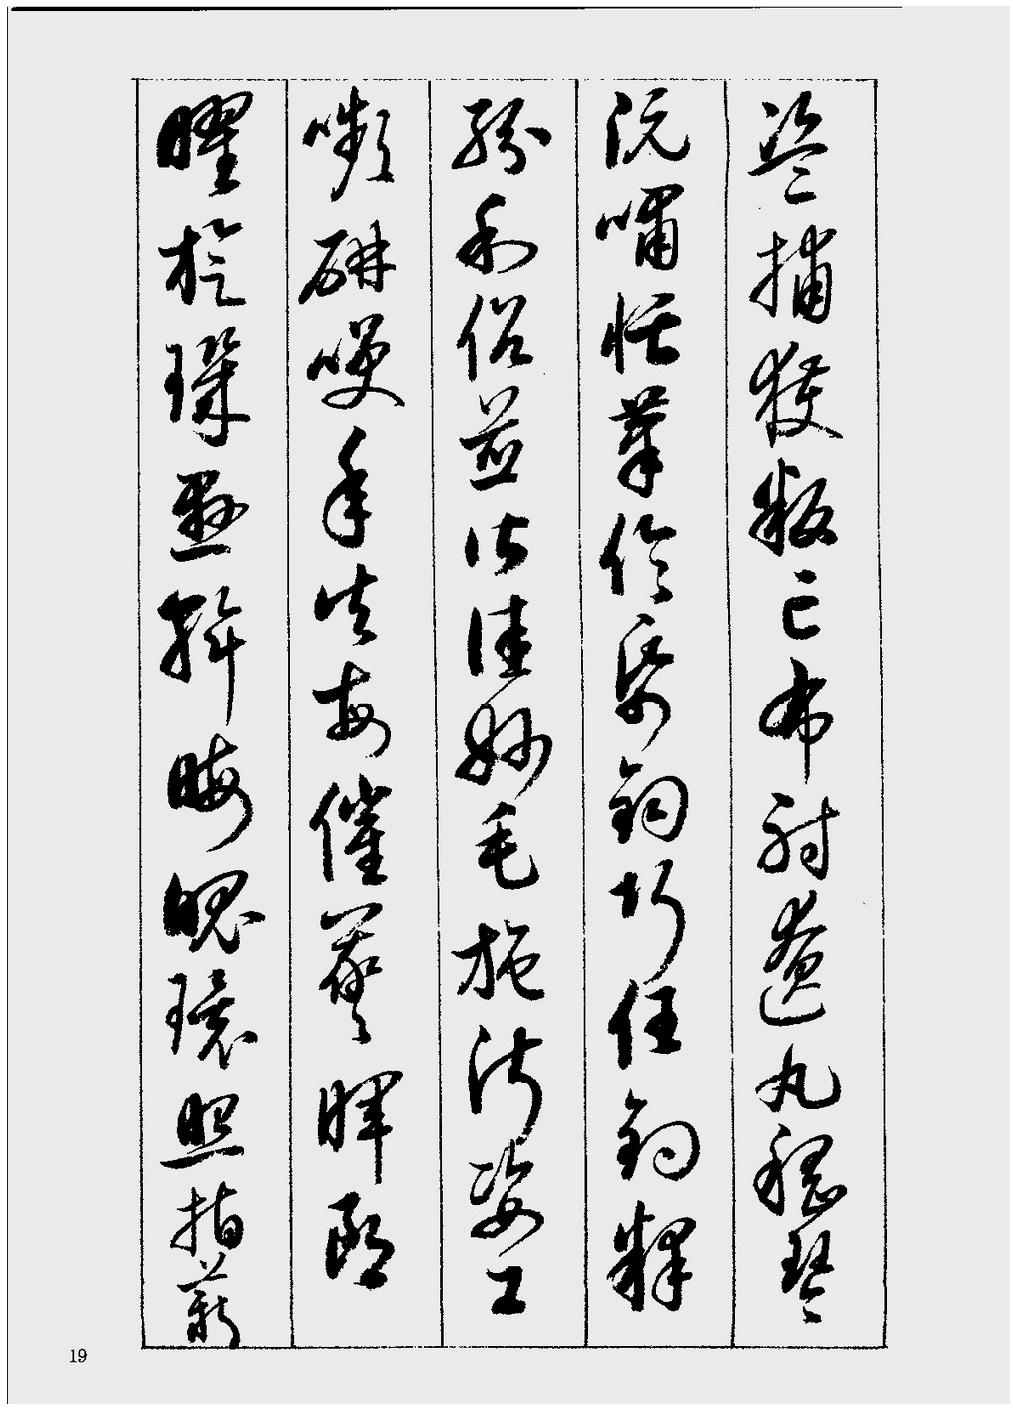 盗捕獲叛亡布射遼丸嵇琴
阮嘯恬筆倫紙鈞巧任釣釋
紛利俗並皆佳妙毛施淑姿工
嚬妍笑年矢每催羲暉朗
曜旋璣懸斡晦魄環照指薪
19